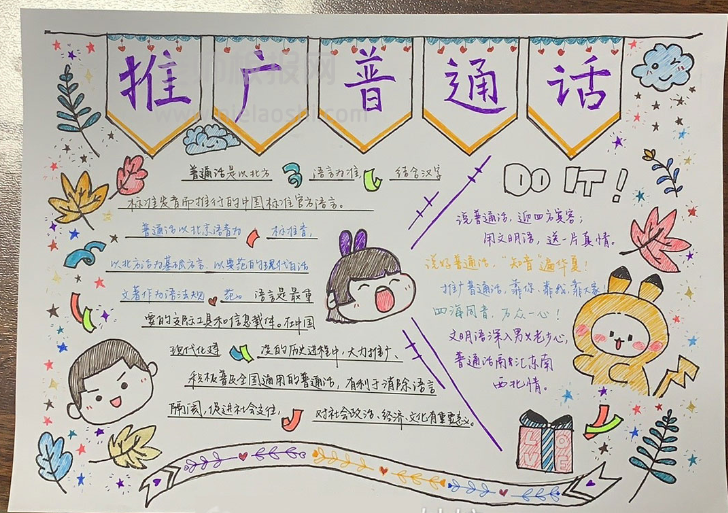 推广普通话
普通话是以北方语言为准，结合汉字
标准发音而推行的中国标准官方语言。
普通话以北京语音为标准音，
以北方话为基础方言，以典范的现代白话
文著作为语法规范。语言是最重
要的交际工具和信息载体。在中国
现代化建设的历史进程中，大力推广、
积极普及全国通用的普通话，有利于消除语言
隔阂，促进社会交往，对社会政治、经济、文化有重要意义。
DO IT!
说普通话，迎四方宾客；
用文明语，送一片真情。
说好普通话，"知音"遍华夏！
推广普通话，靠你、靠我、靠大家
四海同音，万众一心！
文明语深入男女老少心，
普通话南北汇东南
西北情。
LOVE